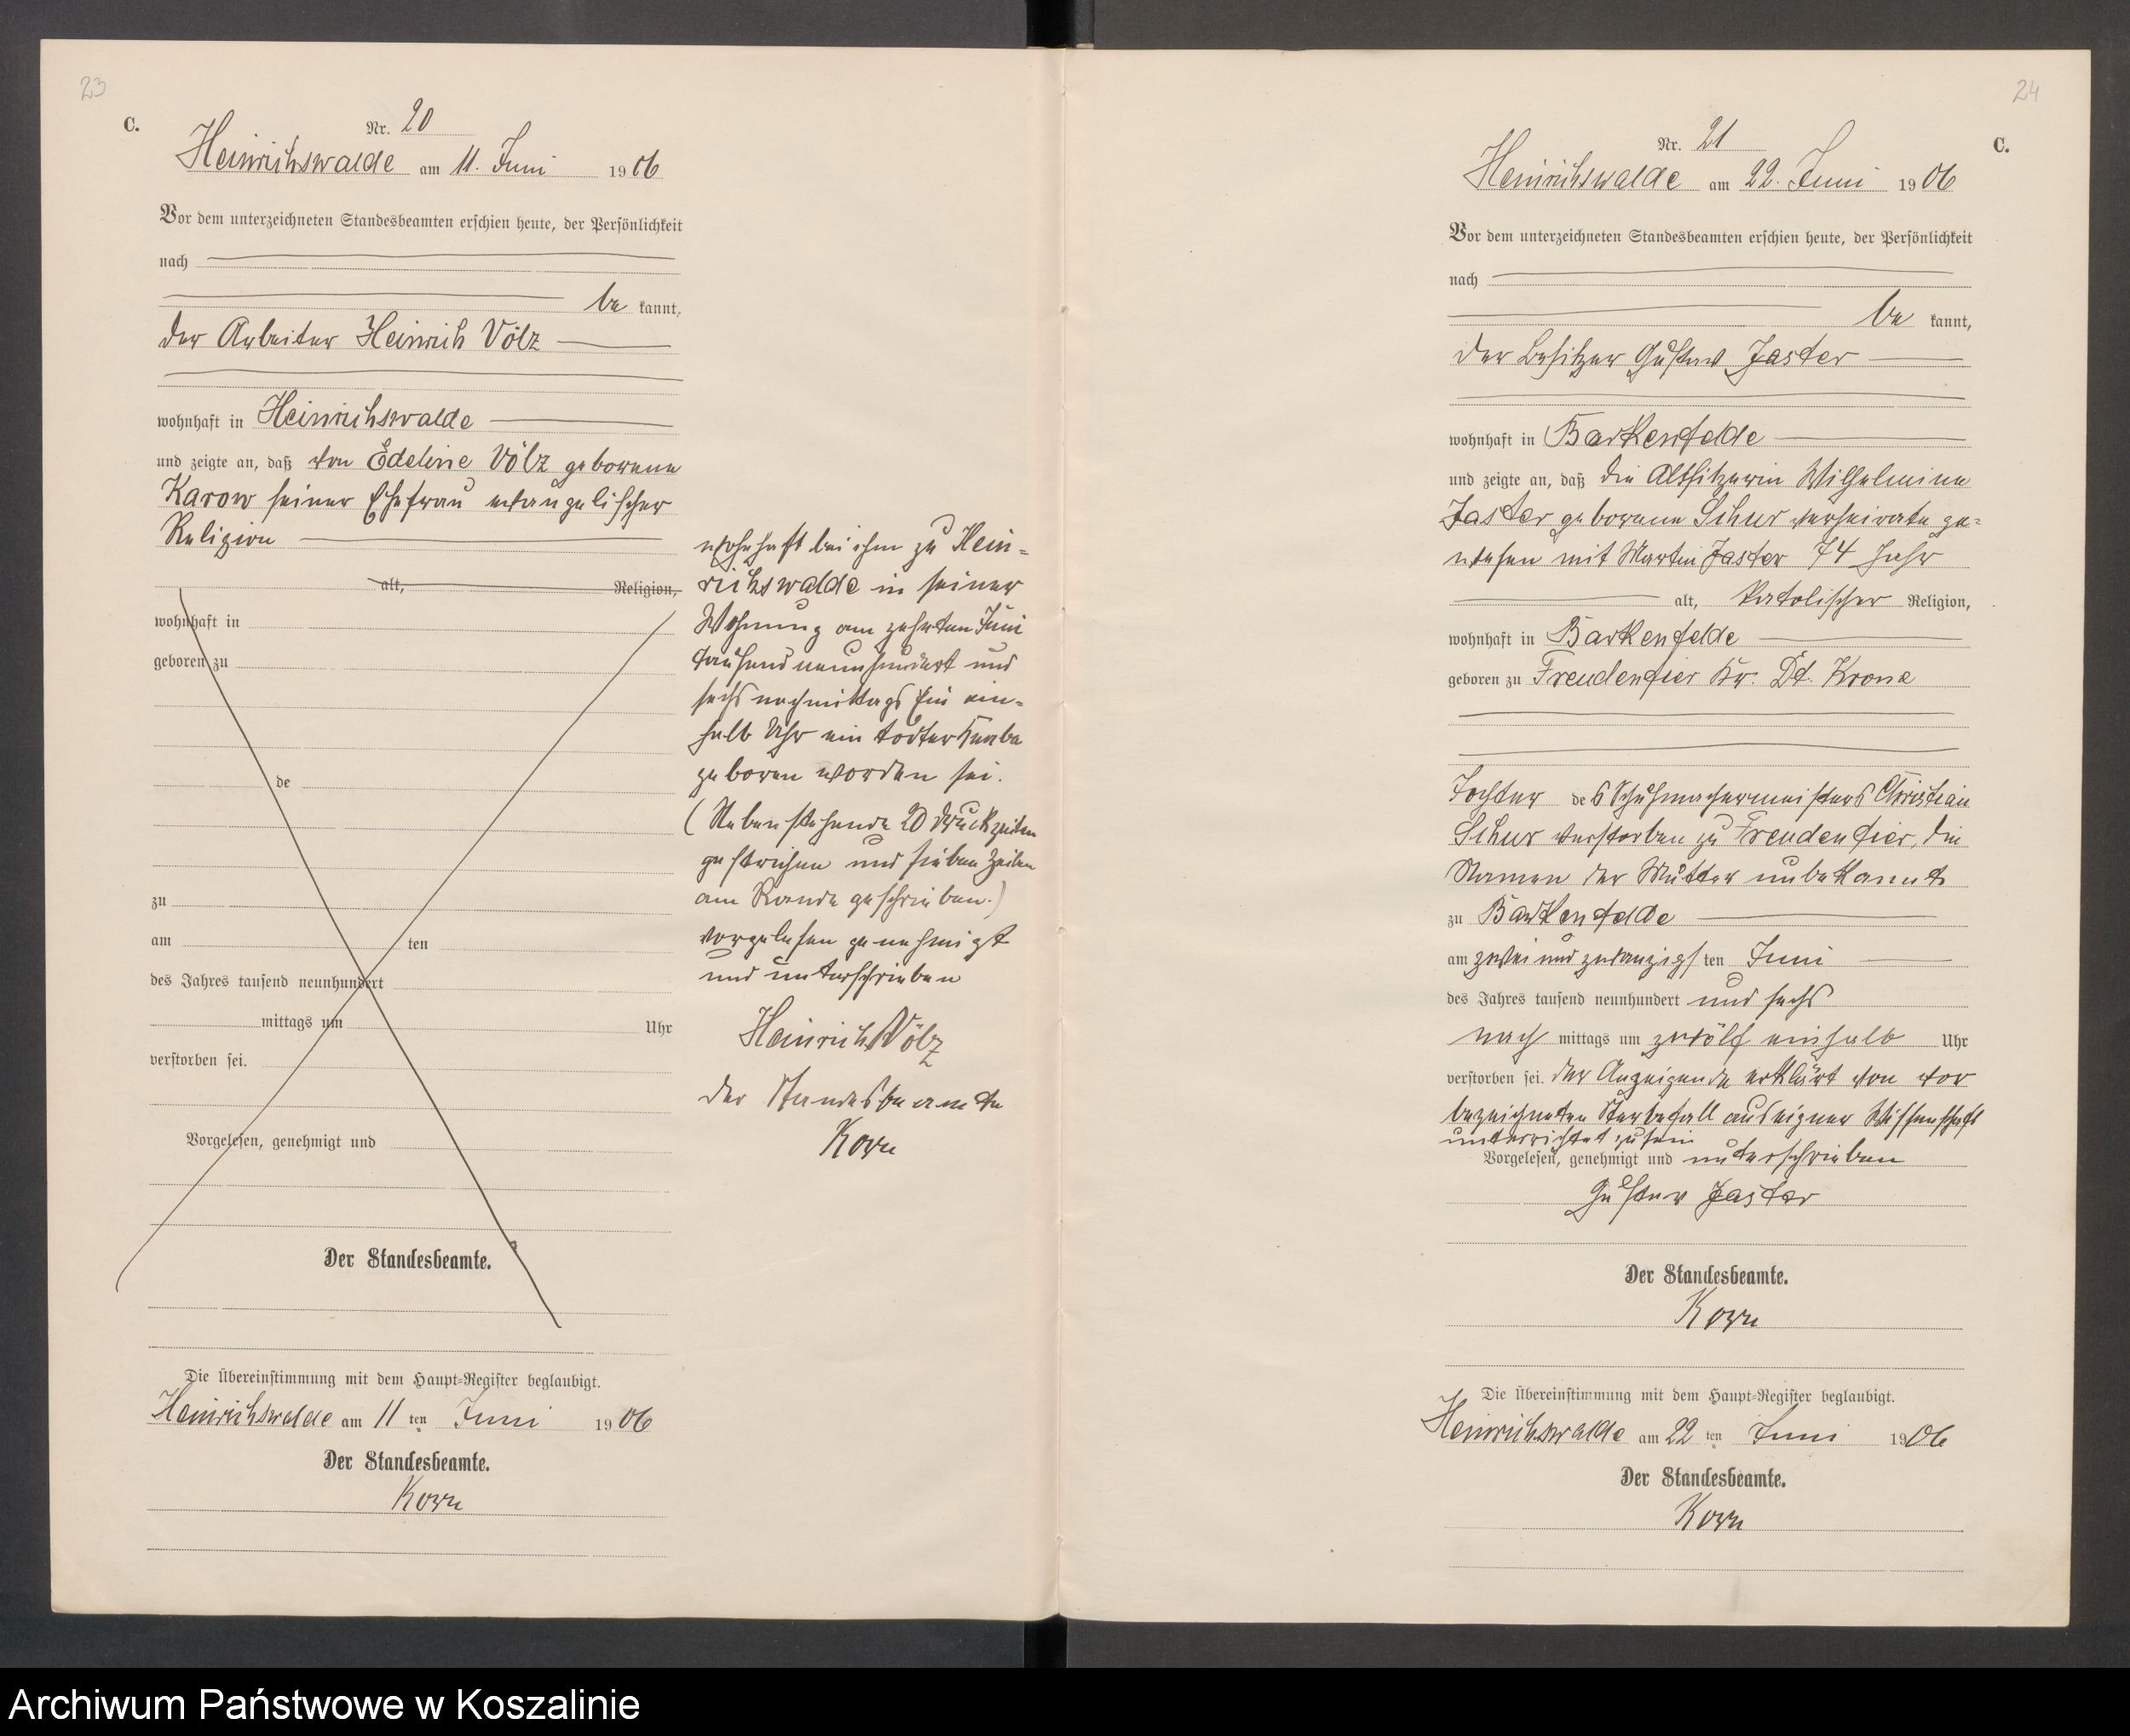 23
C.
Nr. 20
Heinrichswalde am 11. Juni 1906
Vor dem unterzeichneten Standesbeamten erschien heute, der Persönlichkeit
nach
be kannt,
der Arbeiter Heinrich Völz
wohnhaft in Heinrichswalde
und zeigte an, daß von Edeline Völz geborene
Karow seiner Ehefrau evangelischer
Religion
alt, Religion,
wohnhaft in
geboren zu
de
zu
am ten
des Jahres tausend neunhundert
mittags um Uhr
verstorben sei.
Vorgelesen, genehmigt und
Der Standesbeamte.
Die Übereinstimmung mit dem Haupt-Register beglaubigt.
Heinrichswalde am 11 ten Juni 1906
Der Standesbeamte.
Korn
wohnhaft bei ihm zu Hein-
richswalde in seiner
Wohnung am zehnten Juni
tausend neunhundert und
sechs nachmittags ein
halb Uhr ein todter Knabe
geboren worden sei.
(Nebenstehende 20 Druckzeilen
gestrichen und sieben Zeilen
am Rande geschrieben.)
vorgelesen genehmigt
und unterschrieben
Heinrich Völz
der Standesbeamte
Korn
24
C.
Nr. 21
Heinrichswalde am 22. Juni 1906
Vor dem unterzeichneten Standesbeamten erschien heute, der Persönlichkeit
nach
be kannt,
der Besitzer Gustav Jaster
wohnhaft in Barkenfelde
und zeigte an, daß die Altsitzerin Wilhelmine
Jaster geborene Schur verheirate ge-
wesen mit Martin Jaster 74 Jahr
alt, katolischer Religion,
wohnhaft in Barkenfelde
geboren zu Freudenfier Kr. Dt. Krone
Tochter des Schuhmachermeisters Christian
Schur verstorben zu Freudenfier, die
Namen der Mutter unbekannt
zu Barkenfelde
am zwei und zwanzigsten Juni
des Jahres tausend neunhundert und sechs
nach mittags um zwölf einhalb Uhr
verstorben sei. der Anzeigende erklärt von vor
bezeichneten Sterbefall aus eigner Wissenschaft
unterrichtet zu sein
Vorgelesen, genehmigt und unterschrieben
Gustav Jaster
Der Standesbeamte.
Korn
Die Übereinstimmung mit dem Haupt-Register beglaubigt.
Heinrichswalde am 22 ten Juni 1906
Der Standesbeamte.
Korn
Archiwum Państwowe w Koszalinie